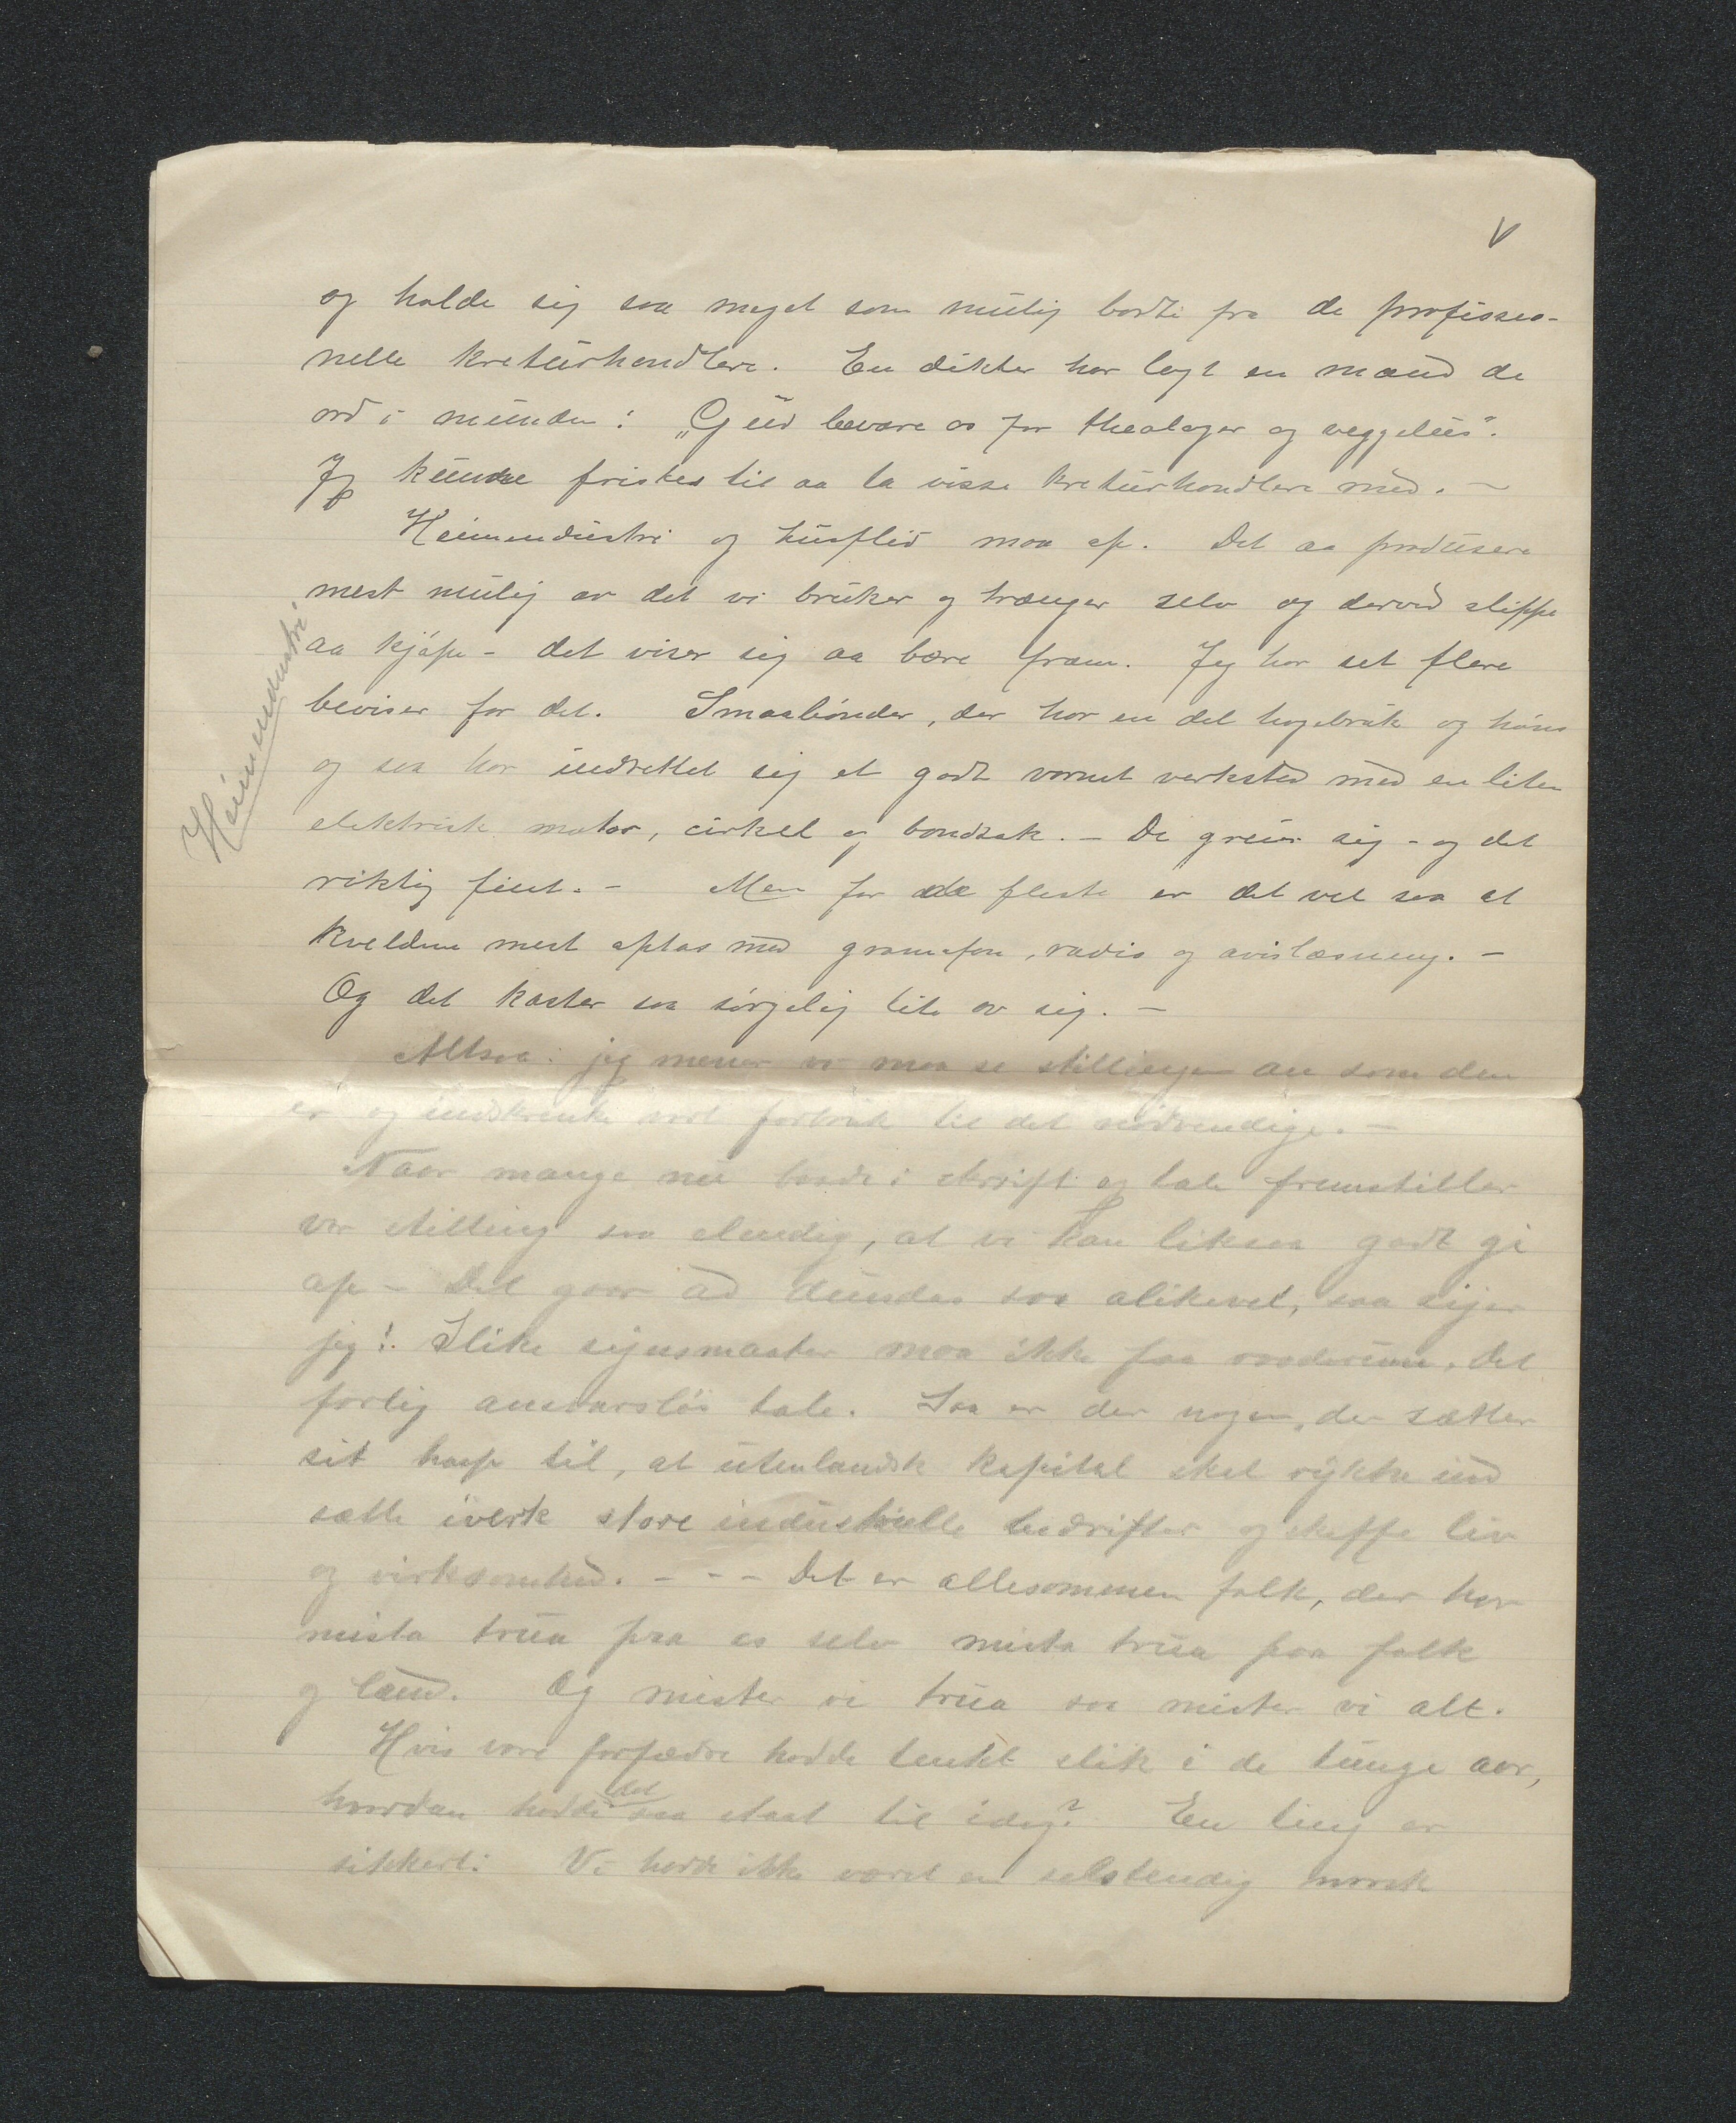 V
og holde sig saa meget som mulig borte fra de professio-
nelle kreturhandlere. En dikter har lagt en mand de
ord i munden: „Gud bevare os for theologer og veggelus".
Jeg kunde fristes til aa ta visse kreturhandlere med. –
Heimendustri og husflid maa op. Det aa produsere
mest mulig av det vi bruker og trænger selv og derved slippe
aa kjøpe – det viser sig aa bære fram. Jeg har set flere
beviser for det. Smaabønder, der har en del hagebruk og høns
og saa har indrettet sig et godt varmt verksted med en liten
elektrisk motor, cirkel og bandsak. – De greier sig – og det
riktig fint. – Men for de fleste er det vel saa at
kveldene mest optas med gramofon, radio og avislæsning. –
Og det kaster saa sørgelig lite av sig. –
Altsaa: jeg mener vi maa se stillingen an som den
er og indskrenke vort forbruk til det nødvendige. –
Naar mange nu baade i skrift og tale fremstiller
vor stilling saa elendig, at vi kan liksaa godt gi
op – Det gaar ad dundas saa alikevel, saa sier
jeg: Slike synsmaater maa ikke faa raaderum. Det
farlig ansvarsløs tale. Saa er der nogen, der sætter
sit haap til, at utenlandsk kapital skal rykke ind
sætte iverk store industrielle bedrifter og skaffe liv
og virksomhed. – – – Det er allesammen folk, der har
mista trua paa os selv mista trua paa folk
og land. Og mister vi trua saa mister vi alt.
Hvis vore forfædre hadde tenkt slik i de tunge aar,
hvordan hadde det saa staat til idag? En ting er
sikkert: Vi hadde ikke været en selstendig norsk
Heimendustri